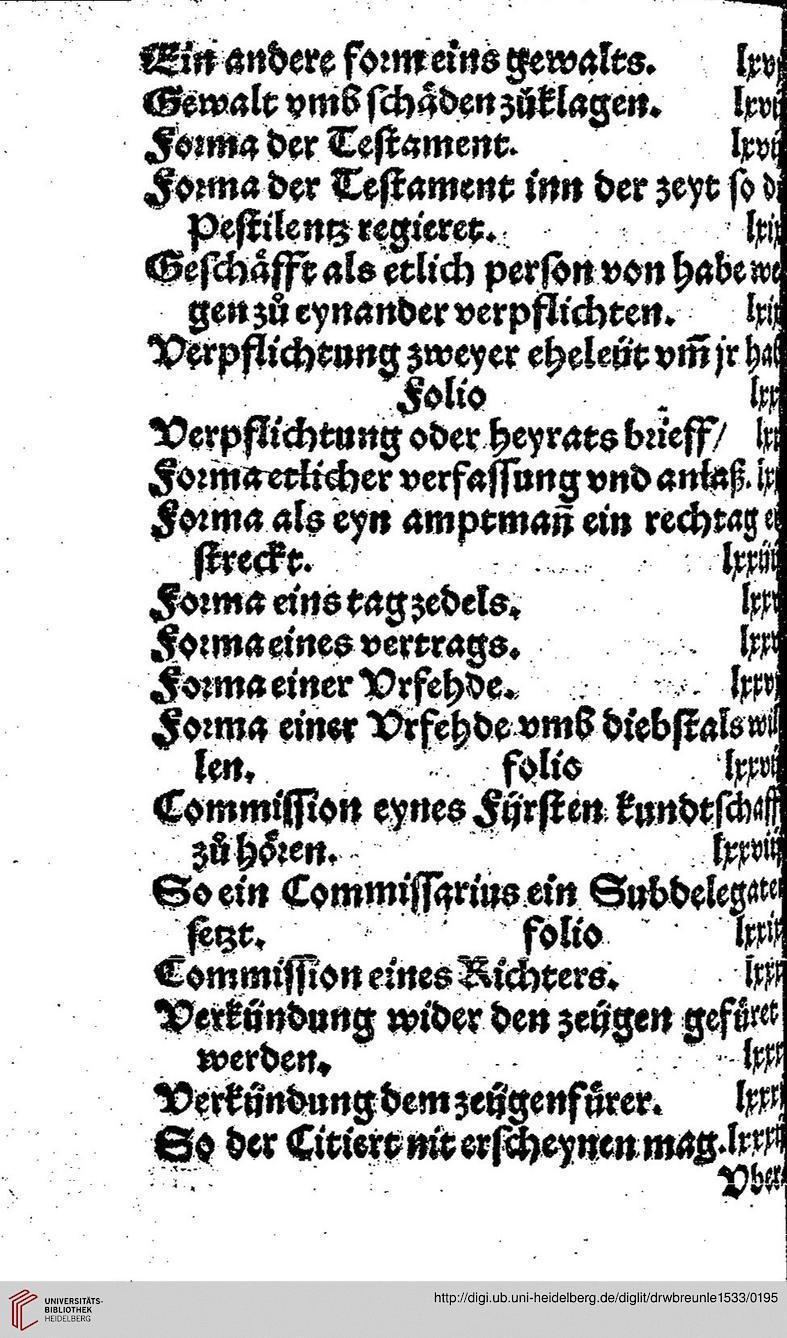 Ein andere form eins gewalts. lxvj
Gewalt vmb schäden zůklagen. lxvij
Forma der Testament. lxvij
Forma der Testament inn der zeyt so di
Pestilentz regieret. lxix
Geschäfft als etlich person von habe we
gen zů eynander verpflichten. lxix
Verpflichtung zweyer eheleüt vm̃ jr hab
Folio lxx
Verpflichtung oder heyrats brieff/ lxx
Forma etlicher verfassung vnd anlaß. lxx
Forma als eyn amptmañ ein rechtag er
streckt. lxxiiij
Forma eins tagzedels. lxxv
Forma eines vertrags. lxxv
Forma einer Vrfehde. lxxvj
Forma einer Vrfehde vmb diebstals wil
len. folio lxxvij
Commission eynes Fürsten kundtschafft
zů hören. lxxviij
So ein Commissarius ein Subdelegaten
setzt. folio lxxix
Commission eines Richters. lxxx
Verkündung wider den zeügen gefüret
werden. lxxx
Verkündung dem zeügenfürer. lxxxj
So der Citiert nit erscheynen mag. lxxxij
Vber
UNIVERSITÄTS-
BIBLIOTHEK
HEIDELBERG
http://digi.ub.uni-heidelberg.de/diglit/drwbreunle1533/0195